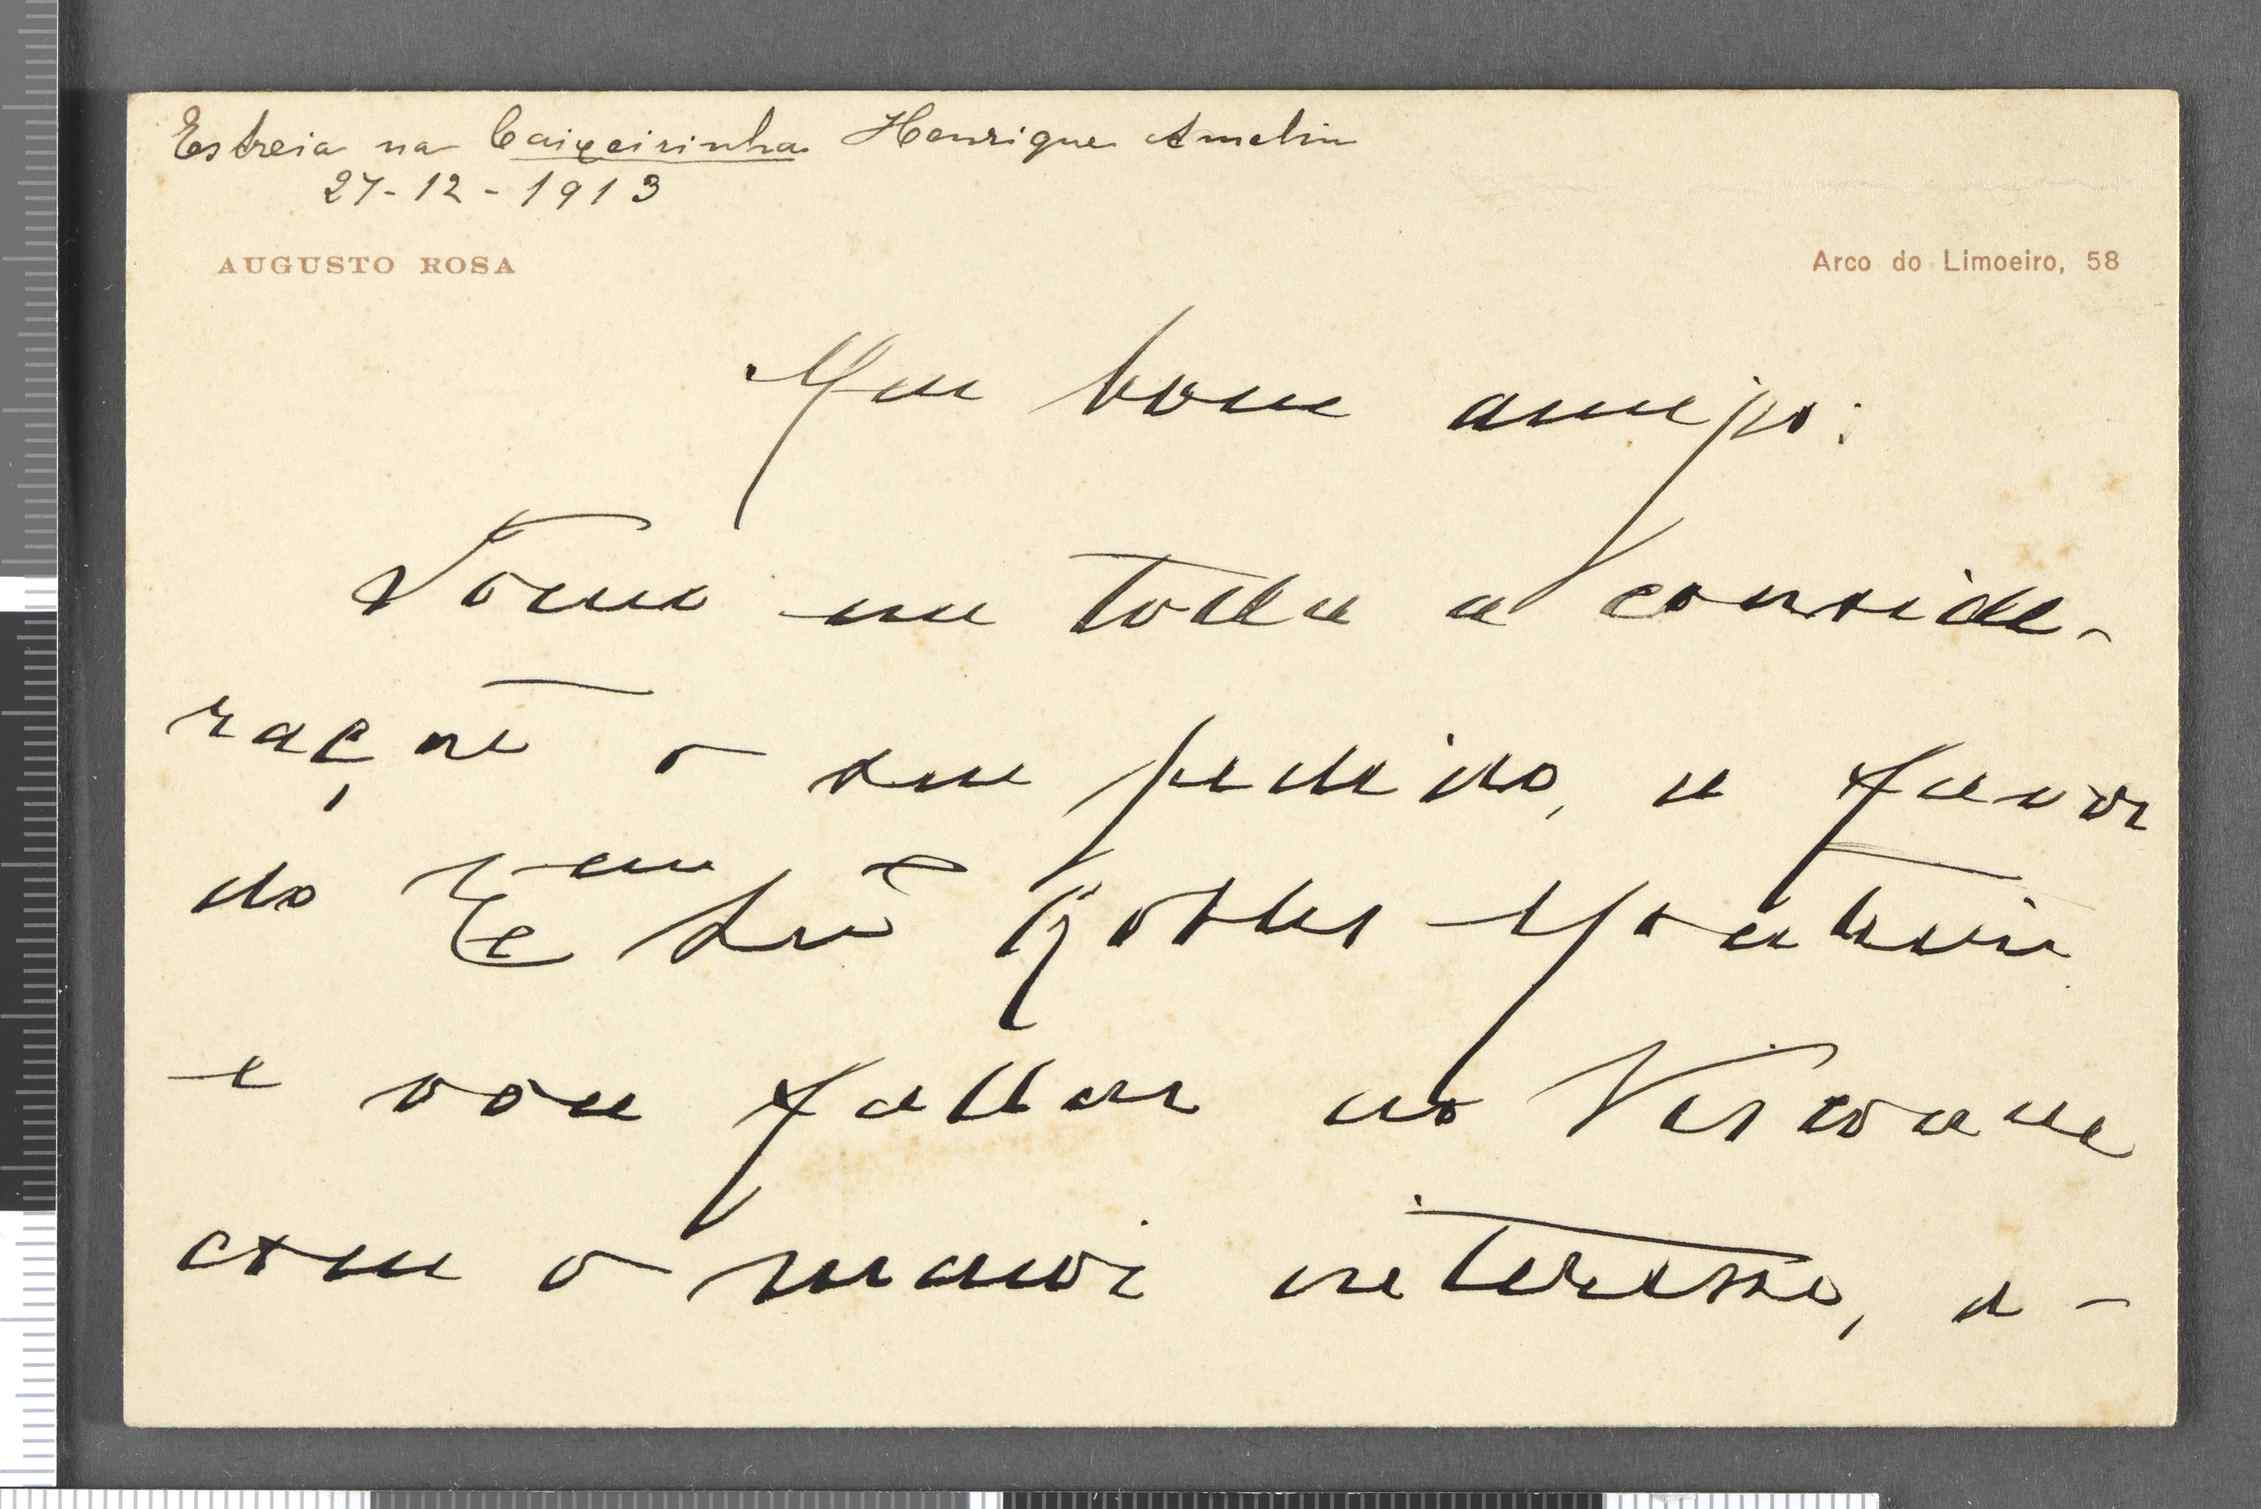 Estreia na Caixeirinha Henrique Amelin
27-12-1913
AUGUSTO ROSA
Arco do Limoeiro, 58
Meu bom amigo:
Tomo em toda a conside-
ração o seu pedido, a favor
do Exmo Snr Gomes Monteiro
e vou fallar ao Visconde
com o maior interesse, a-